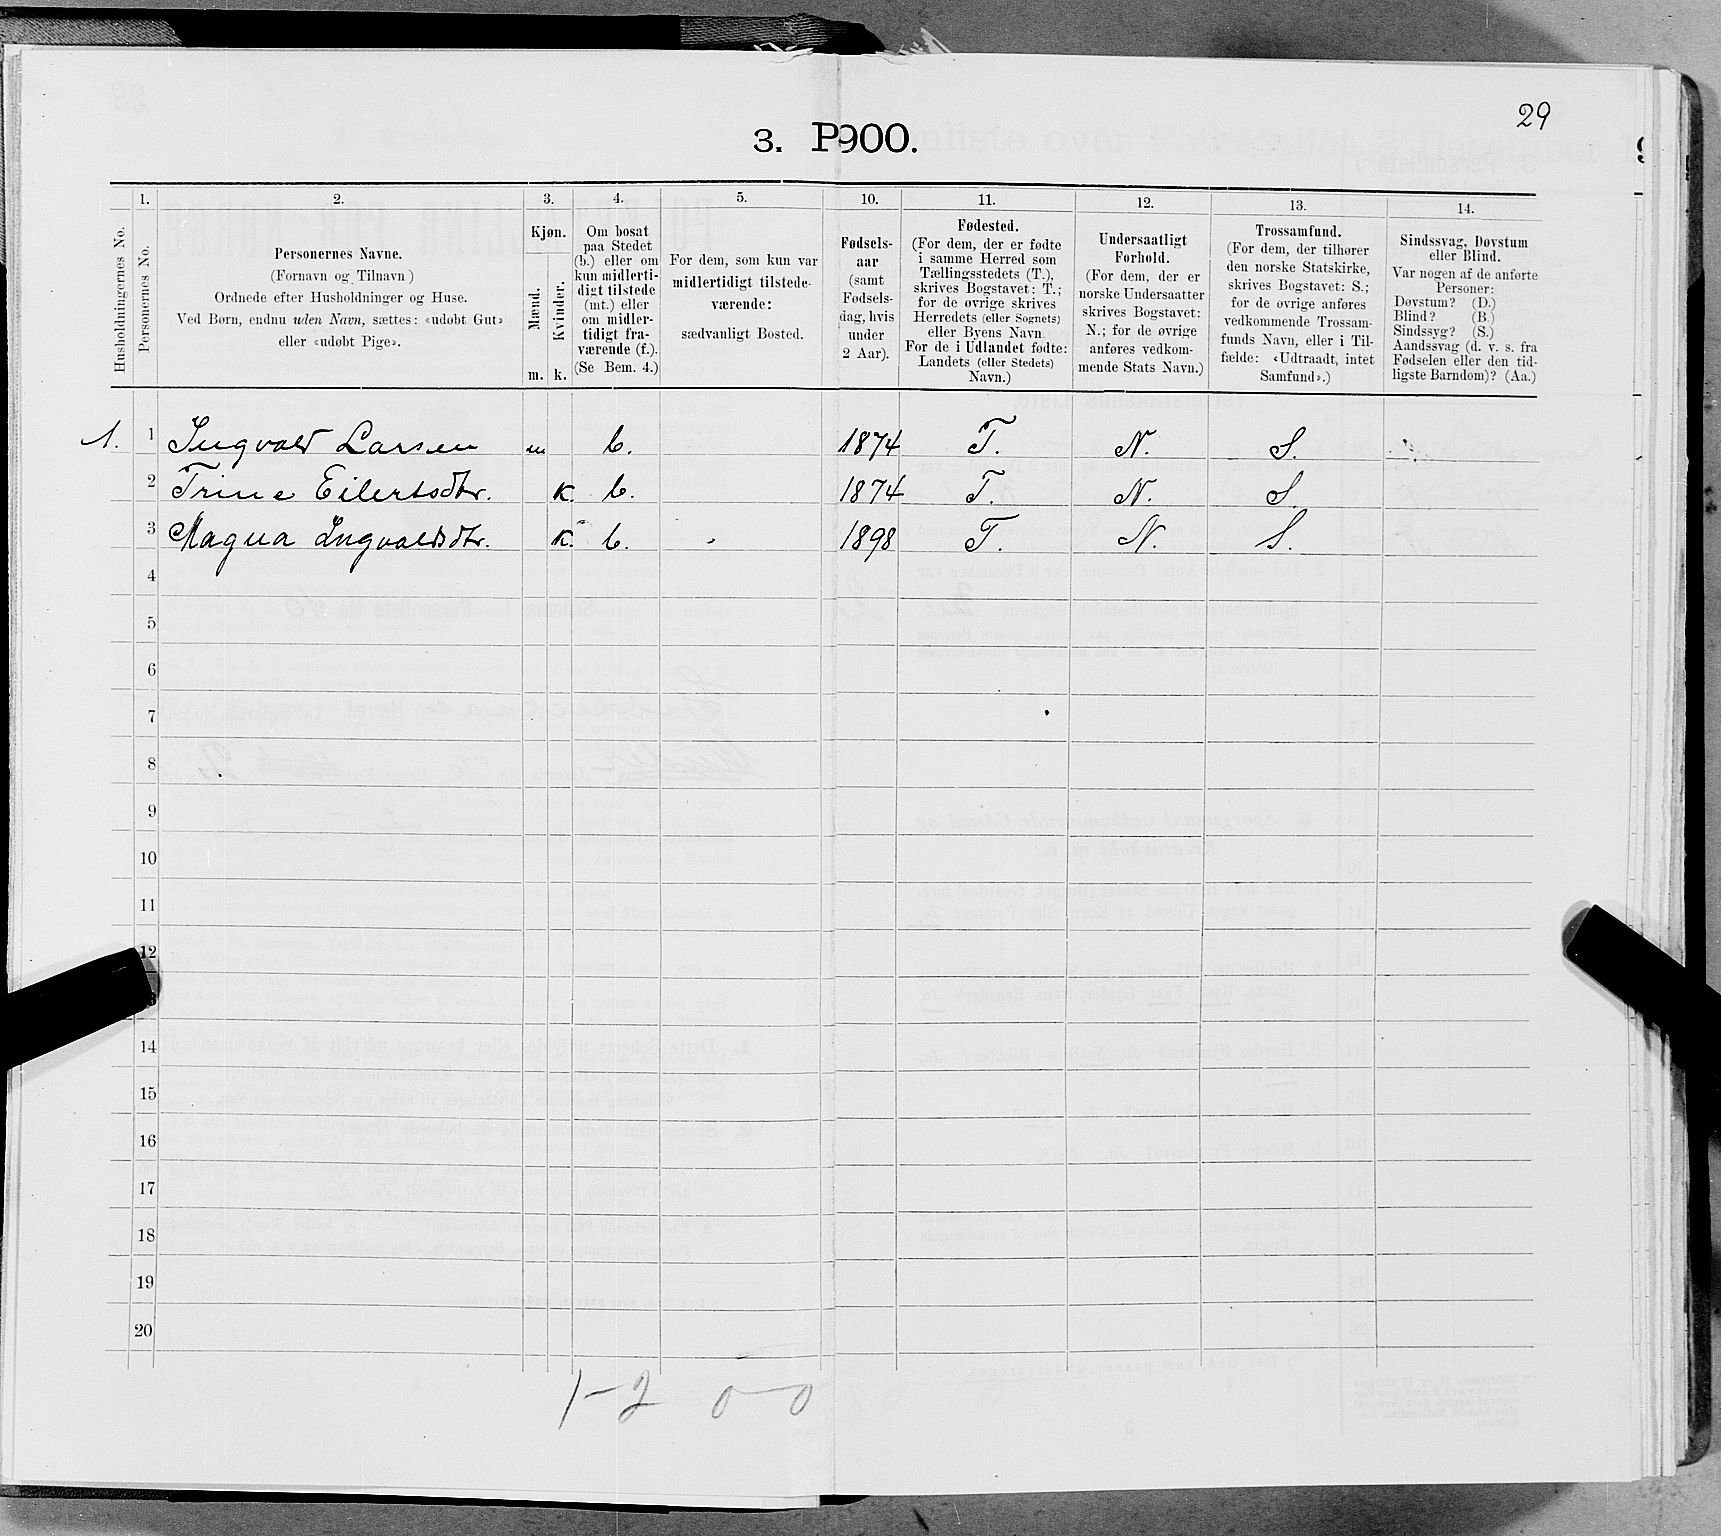 29
3. P900.
1. 2. 3. 4. 5. 10. 11. 12. 13. 14.
Husholdningernes No.
Personernes No.
Personernes Navne.
(Fornavn og Tilnavn)
Ordnede efter Husholdninger og Huse.
Ved Børn, endnu uden Navn, sættes: «udøbt Gut»
eller «udøbt Pige».
Kjøn.
Mænd.
Kvinder.
m. k.
Om bosat
paa Stedet
(b.) eller om
kun midlerti-
digt tilstede
(mt.) eller
om midler-
tidigt fra-
værende (f.).
(Se Bem. 4.)
For dem, som kun var
midlertidigt tilstede-
værende:
sædvanligt Bosted.
Fødsels-
aar
(samt
Fødsels-
dag, hvis
under
2 Aar).
Fødested.
(For dem, der er fødte
i samme Herred som
Tællingsstedets (T.),
skrives Bogstavet: T.;
for de øvrige skrives
Herredets (eller Sognets)
eller Byens Navn.
For de i Udlandet fødte:
Landets (eller Stedets)
Navn.)
Undersaatligt
Forhold.
(For dem, der er
norske Undersaatter
skrives Bogstavet:
N.; for de øvrige
anføres vedkom-
mende Stats Navn.)
Trossamfund.
(For dem, der tilhører
den norske Statskirke,
skrives Bogstavet: S.;
for de øvrige anføres
vedkommende Trossam-
funds Navn, eller i Til-
fælde: «Udtraadt, intet
Samfund».)
Sindssvag, Døvstum
eller Blind.
Var nogen af de anførte
Personer:
Døvstum? (D.)
Blind? (B.)
Sindssyg? (S.)
Aandssvag (d. v. s. fra
Fødselen eller den tid-
ligste Barndom)? (Aa.)
1. 1 Ingvald Larsen m b. 1874 T. N. S.
2 Trine Eilertsdtr. k. b. 1874 T. N. S.
3 Magna Ingvaldsdtr. k. b. 1898 T. N. S.
4
5
6
7
8
9
10
11
12
3
14
15
16
17
18
19
20
1-2 0-0